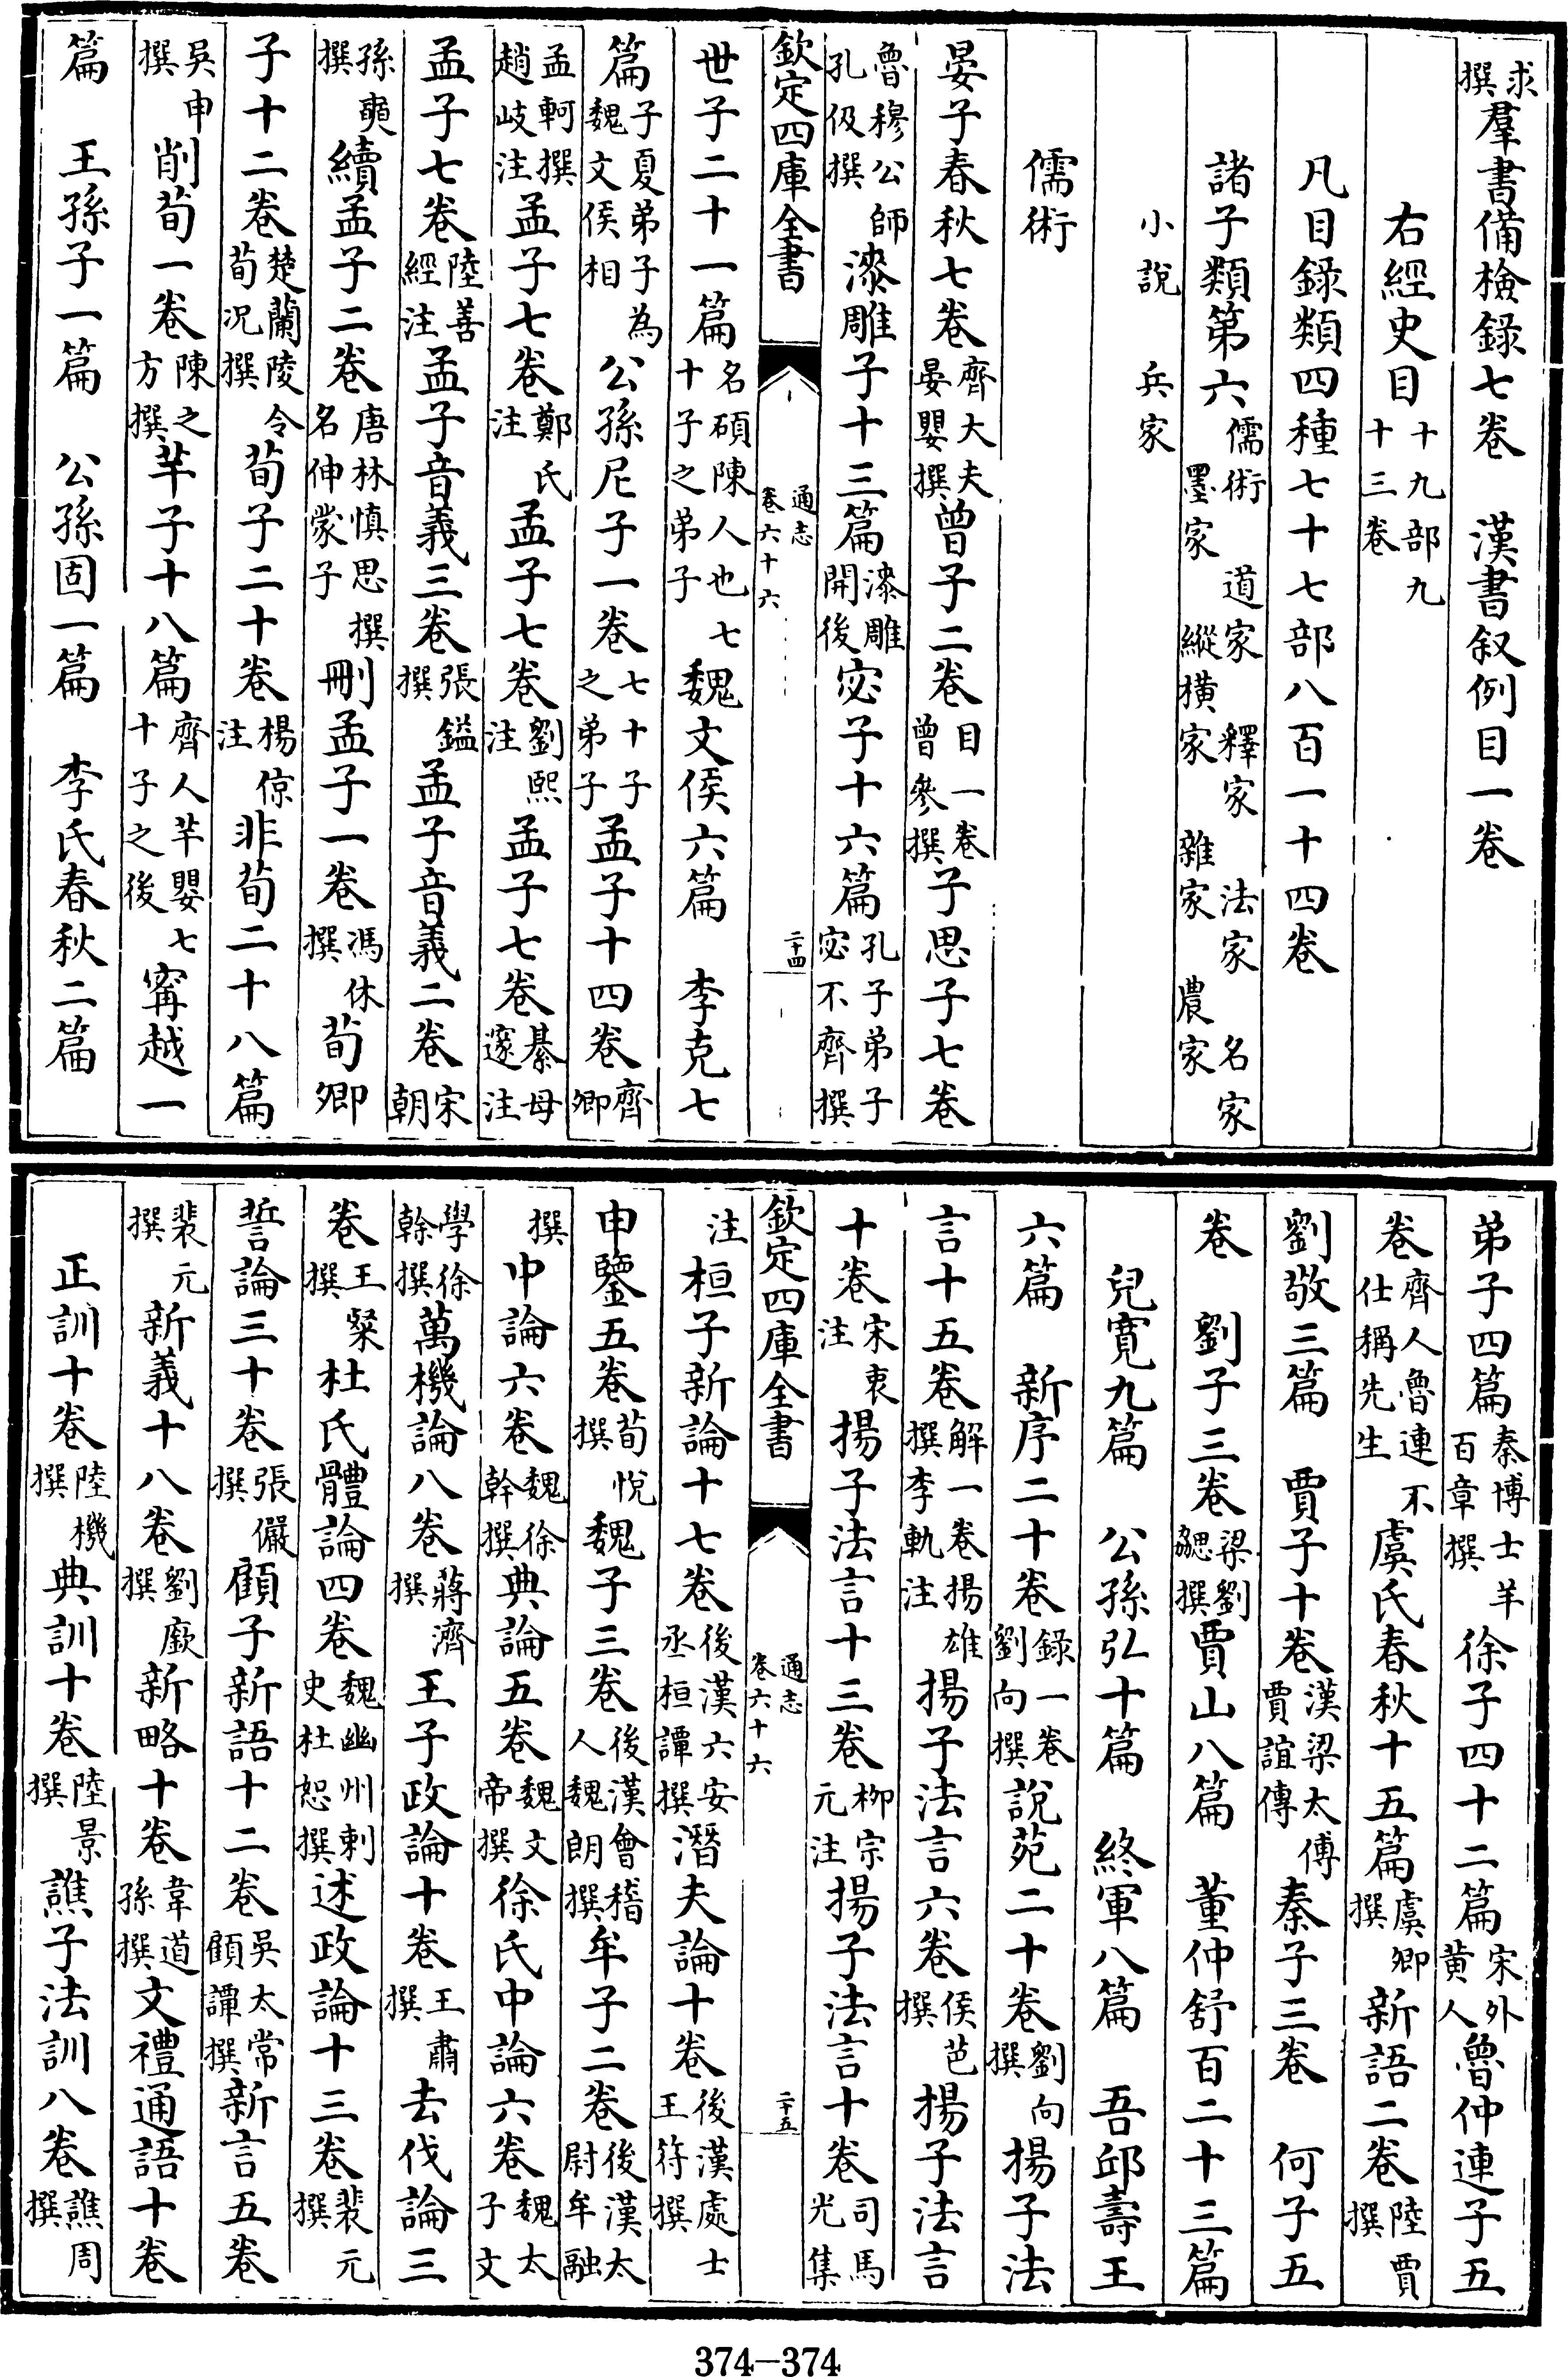 求撰羣書備檢錄七卷 漢書叙例目一卷
右經史目十九部九十三卷
凡目錄類四種七十七部八百一十四卷
諸子類第六儒術 道家 釋家 法家 名家 墨家 縱橫家 雜家 農家
小說 兵家
儒術
晏子春秋七卷齊大夫晏嬰撰曾子二卷目一卷曾參撰子思子七卷
魯穆公師孔伋撰漆雕子十三篇漆雕開後宓子十六篇孔子弟子宓不齊撰
欽定四庫全書 通志卷六十六 二十四
世子二十一篇名碩陳人也七十子之弟子魏文侯六篇 李克七
篇子夏弟子為魏文侯相公孫尼子一卷七十子之弟子孟子十四卷齊卿
孟軻撰趙岐注孟子七卷鄭氏注孟子七卷劉熙注孟子七卷綦母邃注
孟子七卷陸善經注孟子音義三卷張鎰撰孟子音義二卷宋朝
孫奭撰續孟子二卷唐林慎思撰名伸蒙子刪孟子一卷馮休撰荀卿
子十二卷楚蘭陵令荀况撰荀子二十卷楊倞注非荀二十八篇
吳申撰削荀一卷陳之方撰芉子十八篇齊人芉嬰七十子之後甯越一
篇 王孫子一篇 公孫固一篇 李氏春秋二篇
弟子四篇秦博士羊百章撰徐子四十二篇宋外黄人魯仲連子五
卷齊人魯連不仕稱先生虞氏春秋十五篇虞卿撰新語二卷陸賈撰
劉敬三篇 賈子十卷漢梁太傅賈誼傳秦子三卷 何子五
卷 劉子三卷梁劉勰撰賈山八篇 董仲舒百二十三篇
兒寬九篇 公孫弘十篇 終軍八篇 吾邱壽王
六篇 新序二十卷錄一卷劉向撰說苑二十卷劉向撰揚子法
言十五卷解一卷揚雄撰李軌注揚子法言六卷侯芭撰揚子法言
十卷宋衷注揚子法言十三卷栁宗元注揚子法言十卷司馬光集
欽定四庫全書 通志卷六十六 二十五
注桓子新論十七卷後漢六安丞桓譚撰潛夫論十卷後漢處士王符撰
申鑒五卷荀悅撰魏子三卷後漢會稽人魏朗撰牟子二卷後漢太尉牟融
撰中論六卷魏徐幹撰典論五卷魏文帝撰徐氏中論六卷魏太子文
學徐幹撰萬機論八卷蔣濟撰王子政論十卷王肅撰去伐論三
卷王粲撰杜氏體論四卷魏幽州刺史杜恕撰述政論十三卷裴元撰
誓論三十卷張儼撰顧子新語十二卷吳太常顧譚撰新言五卷
裴元撰新義十八卷劉廞撰新略十卷韋道孫撰文禮通語十卷
正訓十卷陸機撰典訓十卷陸景撰譙子法訓八卷譙周撰
374-374